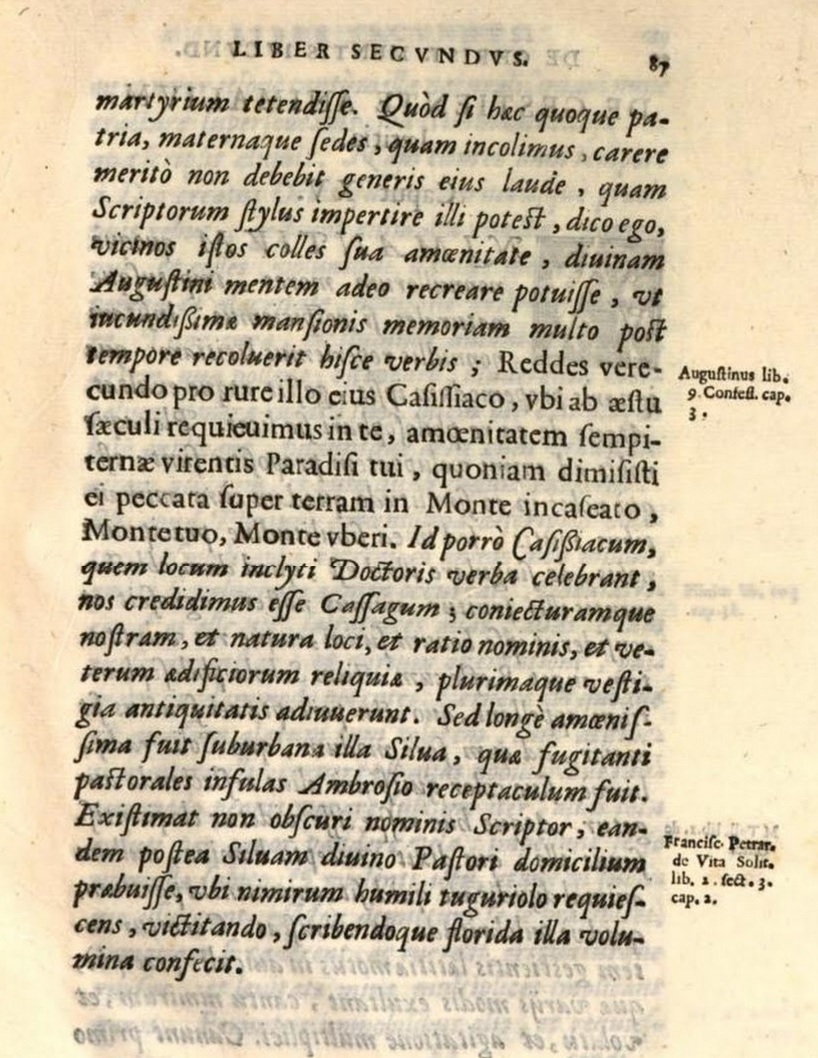 LIBER SECVNDVS. 87
martyrium tetendiſſe. Quòd ſi hæc quoque pa-
tria, maternaque ſedes, quam incolimus, carere
meritò non debebit generis eius laude, quam
Scriptorum ſtylus impertire illi poteſt, dico ego,
vicinos iſtos colles ſua amœnitate, diuinam
Auguſtini mentem adeo recreare potuiſſe, vt
iucundiſſimæ manſionis memoriam multo poſt
tempore recoluerit hiſce verbis; Reddes vere-
cundo pro rure illo eius Caſiſſiaco, vbi ab æſtu
ſæculi requieuimus in te, amœnitatem ſempi-
ternæ virentis Paradiſi tui, quoniam dimiſiſti
ei peccata ſuper terram in Monte incaſeato,
Monte tuo, Monte vberi. Id porrò Caſiſſiacum,
quem locum inclyti Doctoris verba celebrant,
nos credidimus eſſe Caſſagum; coniecturamque
noſtram, et natura loci, et ratio nominis, et ve-
terum ædificiorum reliquiæ, plurimaque veſti-
gia antiquitatis adiuuerunt. Sed longè amœniſ-
ſima fuit ſuburbana illa Silua, quæ fugitanti
paſtorales infulas Ambroſio receptaculum fuit.
Exiſtimat non obſcuri nominis Scriptor, ean-
dem poſtea Siluam diuino Paſtori domicilium
præbuiſſe, vbi nimirum humili tuguriolo requieſ-
cens, victitando, ſcribendoque florida illa volu-
mina confecit.
Auguſtinus lib.
9 Confeſſ. cap.
3.
Franciſc. Petrar.
de Vita Solit.
lib. 2. ſect. 3.
cap. 2.